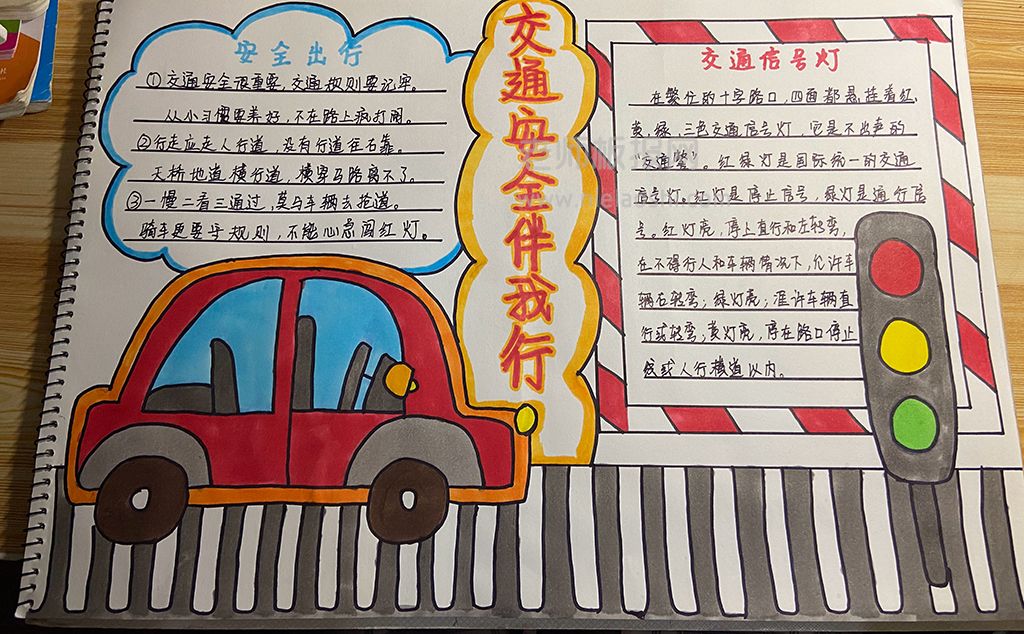 安全出行
①交通安全很重要,交通规则要记牢。
从小习惯要养好,不在路上疯打闹。
②行走应走人行道,没有行道往右靠。
天桥地道横行道,横穿马路离不了。
③一慢二看三通过,莫与车辆去抢道。
骑车更要守规则,不能心急闯红灯。
交通安全伴我行
交通信号灯
在繁忙的十字路口,四面都悬挂着红,
黄,绿,三色交通信号灯,它是不出声的
“交通警”。红绿灯是国际统一的交通
信号灯。红灯是停止信号,绿灯是通行信
号。红灯亮,停止直行和左转弯,
在不得行人和车辆情况下,允许车
辆右转弯;绿灯亮;准许车辆直
行或转弯;黄灯亮,停在路口停止
线或人行横道以内。